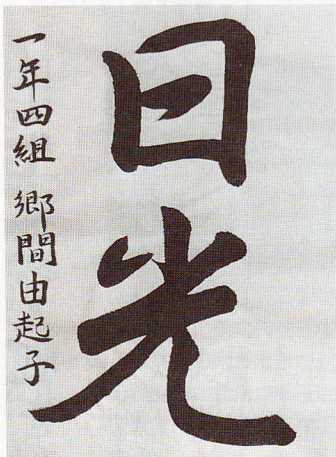 日光
一年四組 郷間由起子